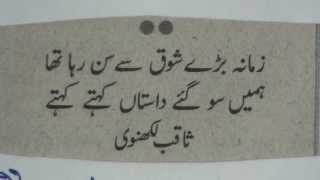 زمانہ بڑے شوق سے سن رہا تھا
ہمیں سو گئے داستاں کہتے کہتے
ثاقب لکھنوی